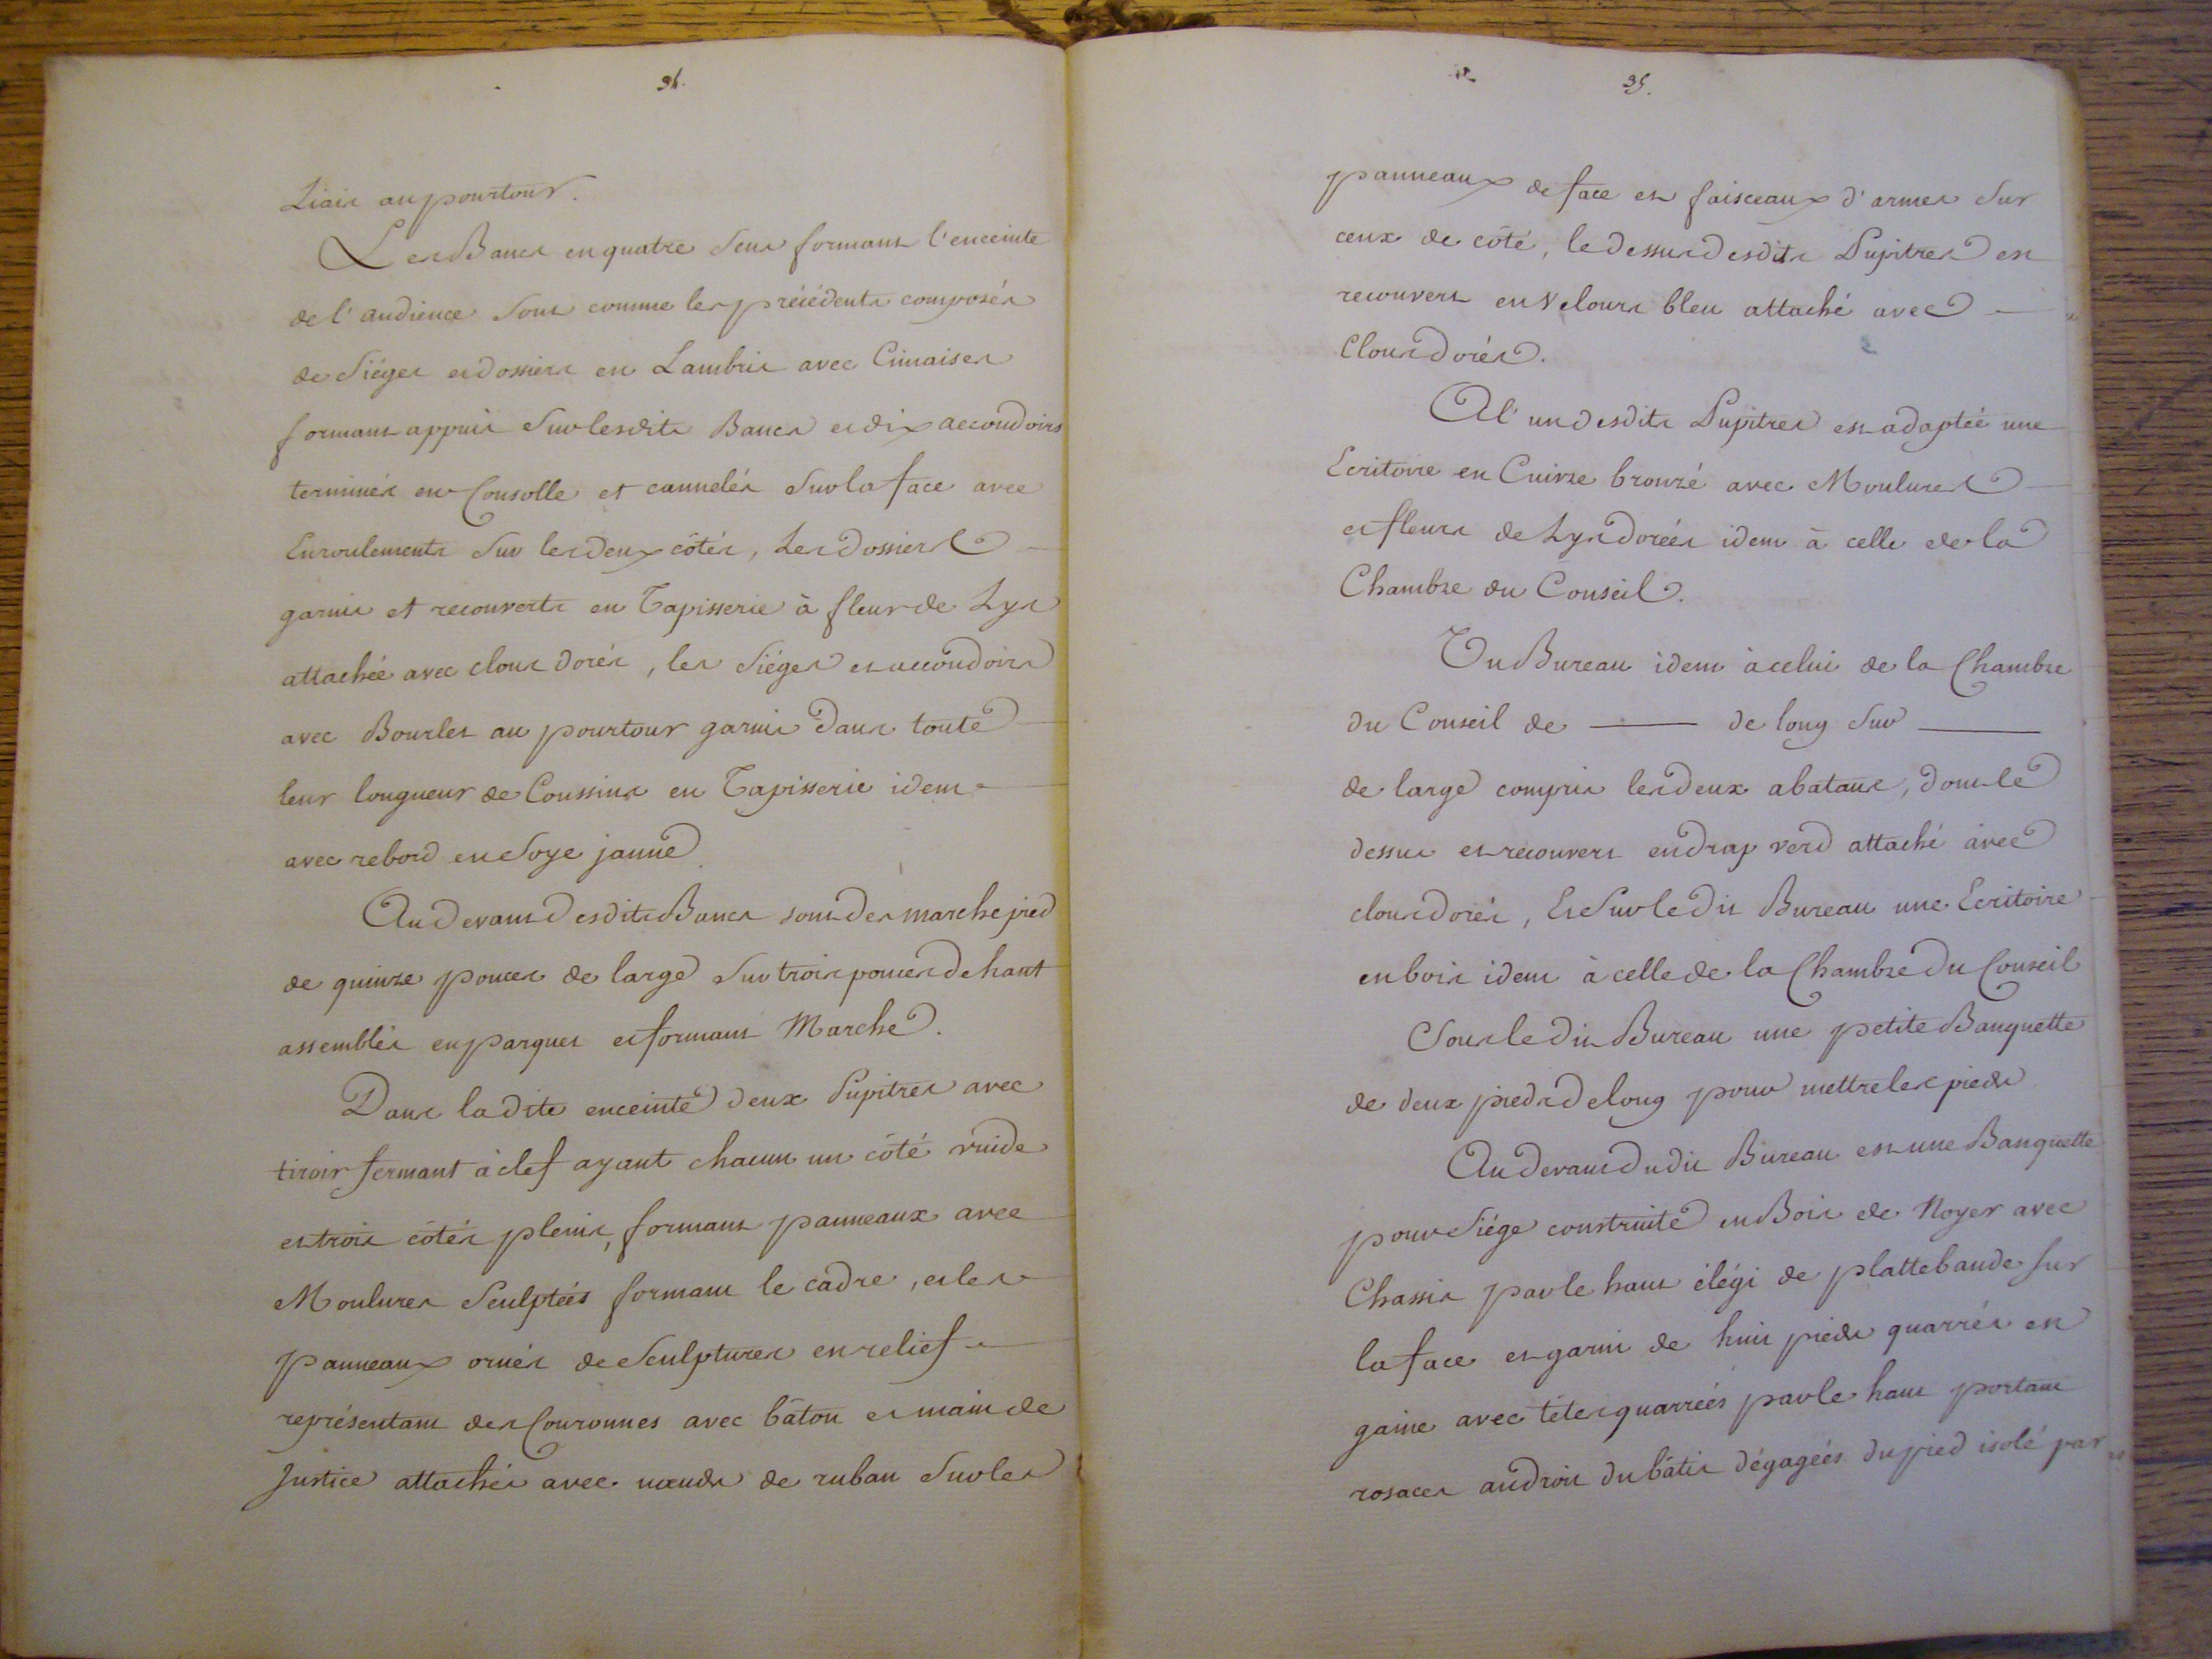 34.
Liais au pourtour.
Les Bancs en quatre sens formant l'enceinte
de l'audience sont comme les précédents composés
de Siéges et dossiers en Lambris avec Cimaises
formant appui Sur lesdits Bancs et dix accoudoirs
terminés en Consolle et cannelés Sur la face avec
Enroulements Sur les deux côtés, Les dossiers
garnis et recouverts en Tapisserie à fleur de Lys
attachée avec clous dorés, les Siéges et accoudoirs
avec Bourlet au pourtour garnis dans toute
leur longueur de Coussins en Tapisserie idem
avec rebord en Soye jaune
Au devant desdits Bancs sont des marchepied
de quinze pouces de large Sur trois pouces de haut
assemblés en parquet et formant Marche.
Dans ladite enceinte deux Pupitres avec
tiroir fermant à clef ayant chacun un côté vuide
et trois côtés pleins, formant panneaux avec
Moulures Sculptées formant le cadre, et les
panneaux ornés de Sculptures en relief
représentant des Couronnes avec bâton et main de
Justice attachés avec nœuds de ruban Sur les
35.
panneaux de face et faisceaux d'armes Sur
ceux de côté, le dessus desdits Pupitres est
recouvert en Velours bleu attaché avec
Clous dorés.
A l'un desdits Pupitres est adaptée une
Ecritoire en Cuivre bronzé avec Moulures
et fleurs de Lys dorées idem à celle de la
Chambre du Conseil.
Un Bureau idem à celui de la Chambre
du Conseil de ——— de long Sur ———
de large compris les deux abatans, dont le
dessus est recouvert en drap verd attaché avec
clous dorés, Et Sur ledit Bureau une Ecritoire
en bois idem à celle de la Chambre du Conseil
Sous ledit Bureau une petite Banquette
de deux pieds de long pour mettre les pieds
Au devant dudit Bureau est une Banquette
pour Siége construite en Bois de Noyer avec
Chassis par le haut élégi de plattebande sur
la face et garni de huit pieds quarrés en
gaine avec têtes quarrées par le haut portant
rosaces au droit du bâtis dégagées du pied isolé par